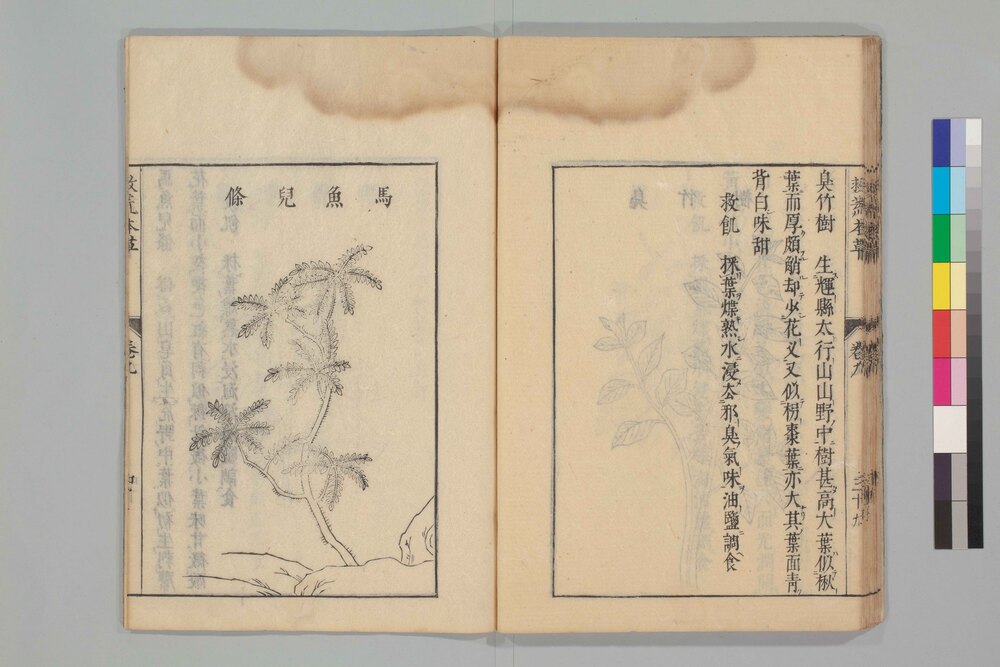 救荒本草 卷九 三十九
臭竹樹 生輝縣太行山山野中樹甚高大葉似楸
葉而厚頗艄却少花叉又似柺棗葉亦大其葉面青
背白味甜
救飢 採葉煠熟水浸去邪臭氣味油鹽調食
馬魚兒條
救荒本草 卷九